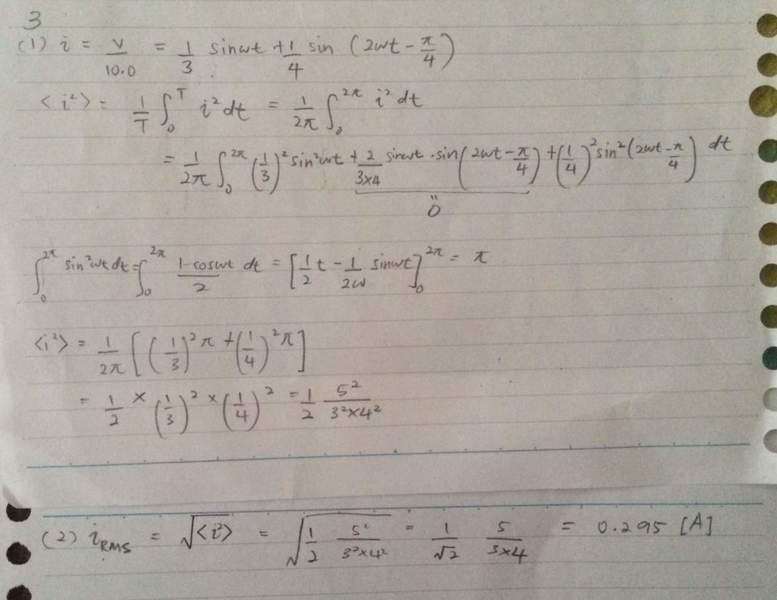 3
(1) i = v/10.0 = 1/3 sinωt + 1/4 sin (2ωt - π/4)
<i²> = 1/T ∫₀ᵀ i² dt = 1/2π ∫₀^2π i² dt
= 1/2π ∫₀^2π (1/3)² sin²ωt + 2/3×4 sinωt · sin(2ωt - π/4) + (1/4)² sin²(2ωt - π/4) dt
"
0
∫₀^2π sin²ωt dt = ∫₀^2π 1-cosωt/2 dt = [1/2 t - 1/2ω sinωt]₀^2π = π
<i²> = 1/2π [(1/3)² π + (1/4)² π]
= 1/2 × (1/3)² × (1/4)² = 1/2 5²/3²×4²
(2) i_RMS = √<i²> = √(1/2 5²/3²×4²) = 1/√2 5/3×4 = 0.295 [A]